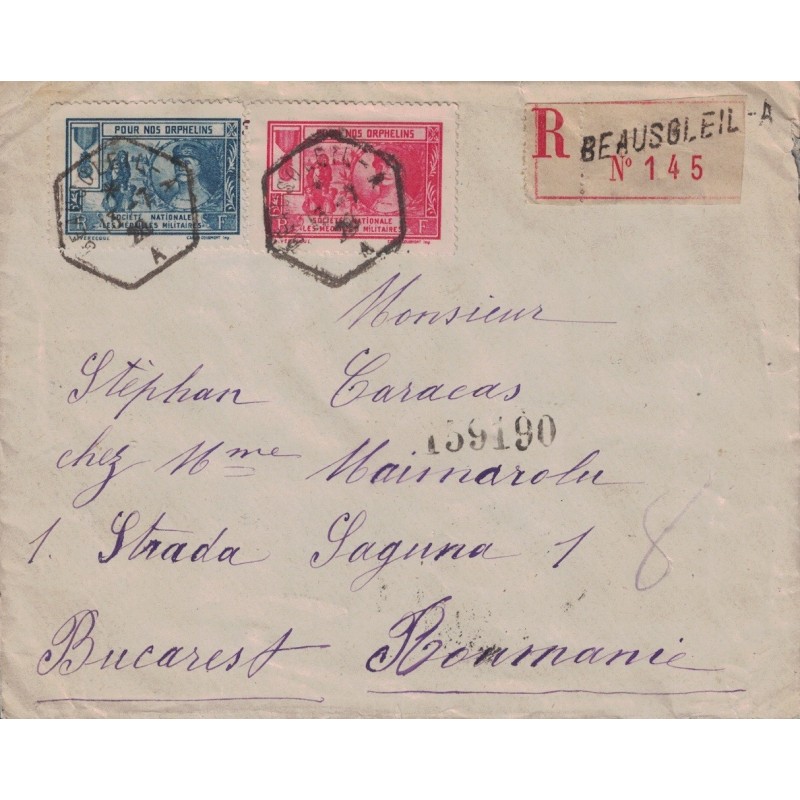 POUR NOS ORPHELINS
R F
SOCIÉTÉ NATIONALE
LES MÉDAILLES MILITAIRES
A
POUR NOS ORPHELINS
F
SOCIÉTÉ NATIONALE
LES MÉDAILLES MILITAIRES
A
R BEAUSOLEIL-A
Nº 145
Monsieur
Stéphan Caracas
159190
chez Mme Maimarolu
1. Strada Saguna 1
8
Bucarest Roumanie